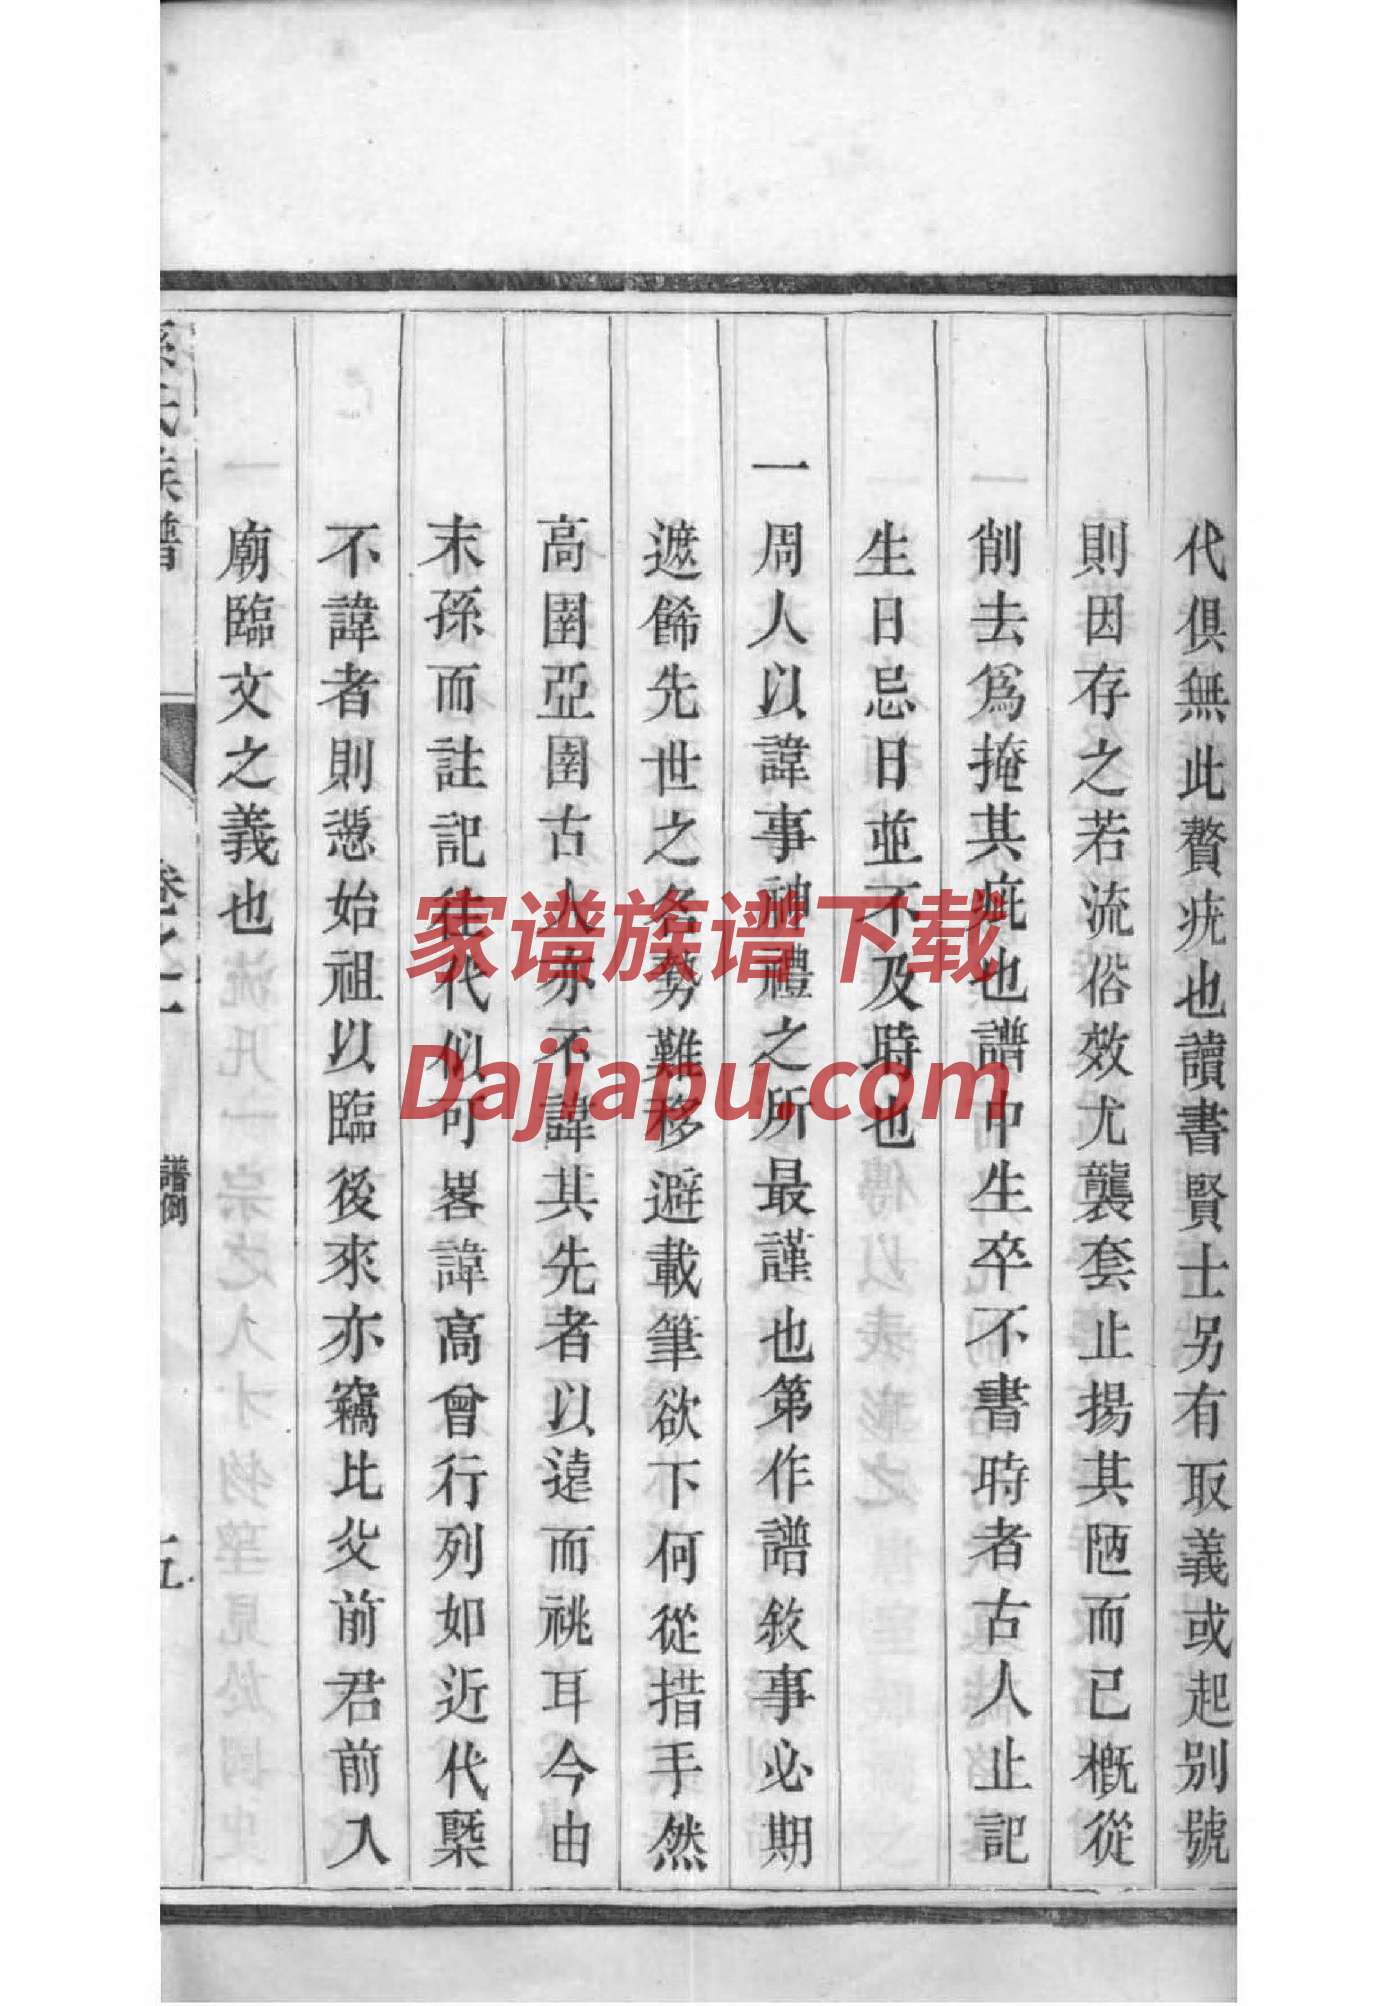 代俱無此贅疣也讀書賢士另有取義或起别號
則因存之若流俗效尤襲套止揚其陋而已槪從
削去爲掩其疵也譜中生卒不書時者古人止記
生日忌日並不及時也
一周人以諱事神禮之所最謹也第作譜敘事必期
遮餙先世之名勢難移避載筆欲下何從措手然
高圉亞圉古人亦不諱其先者以遠而祧耳今由
末孫而註記往代似可畧諱高曾行列如近代槩
不諱者則愻始祖以臨後來亦竊比父前君前入
廟臨文之義也
孫氏族譜 卷之一 譜例 五
家谱族谱下载
Dajiapu.com